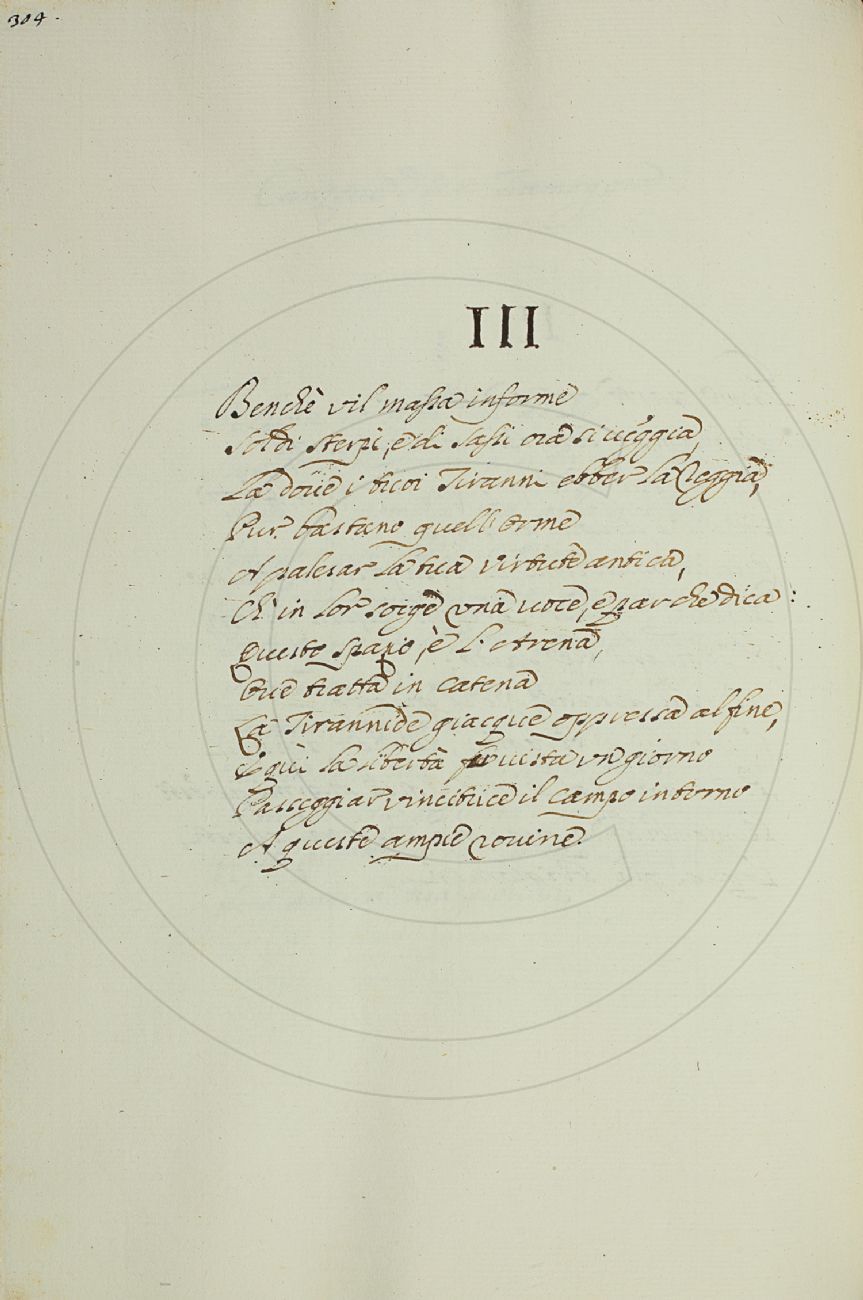 304.
III
Benchè vil massa informe
Sol di sterpi, e di sassi ora si veggia,
La dove i tuoi Tiranni ebber la Reggia,
Pur bastano quell'orme
A palesar la tua virtute antica,
Ch'in lor sorge una voce, e par che dica:
Questo spazio, è l'Arena,
Ove tratta in catena
La Tirannide giacque oppressa al fine,
E qui la libertà fu vista un giorno
Passeggiar vincitrice il campo intorno
A queste ampie rovine.